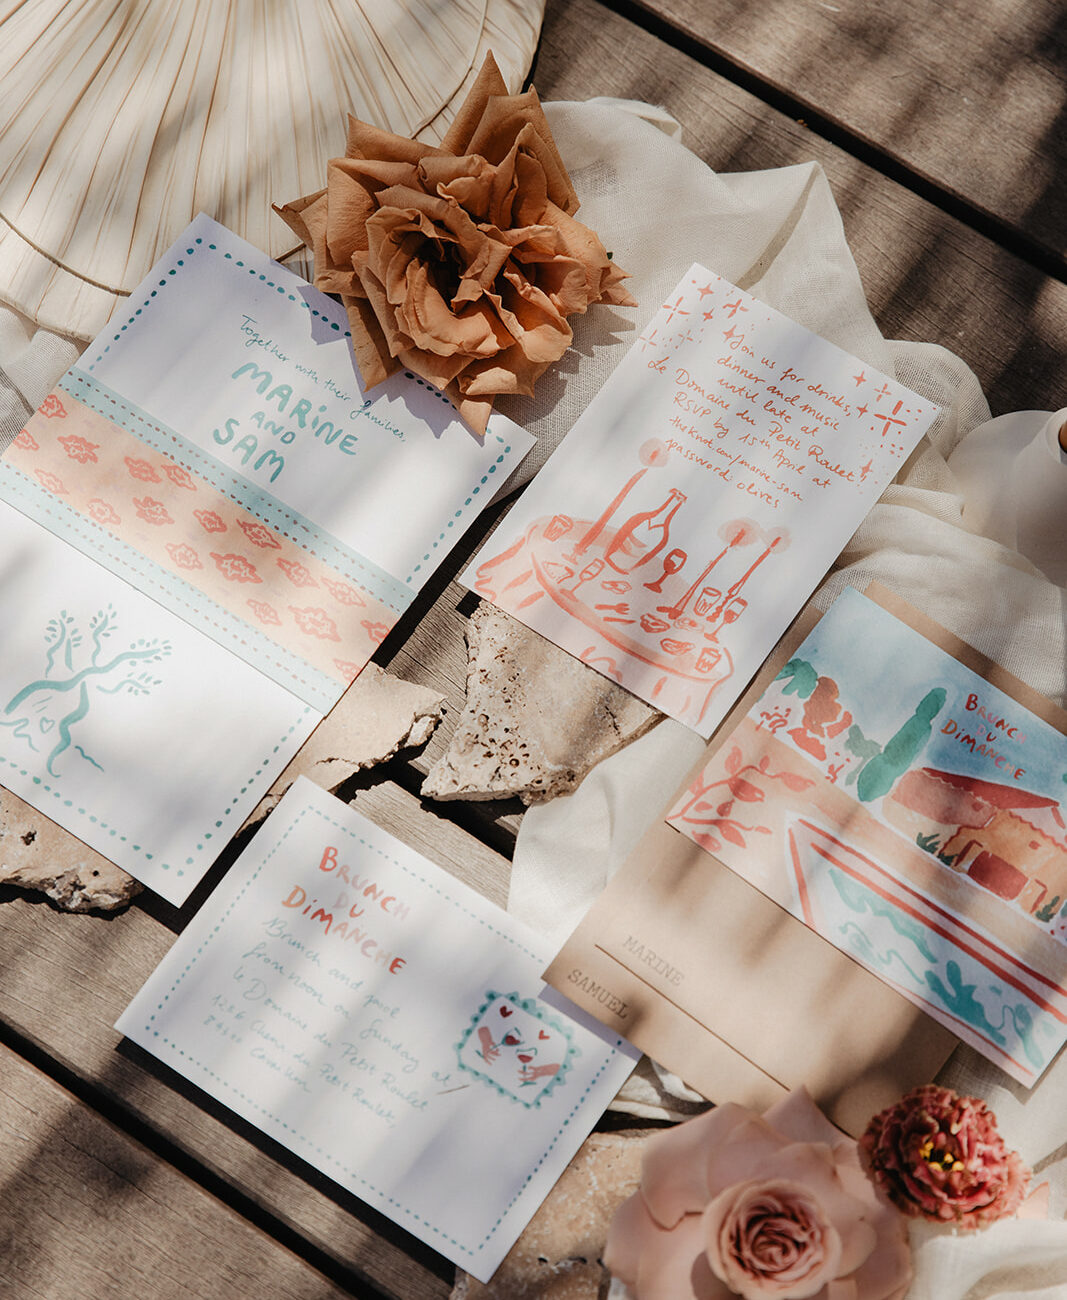 Together with their families,
MARINE
AND
SAM
Join us for drinks,
dinner and music
until late at
Le Domaine du Petit Roulet!
RSVP by 15th April at
theknot.com/marine-sam
password: olives
BRUNCH
DU
DIMANCHE
MARINE
SAMUEL
BRUNCH
DU
DIMANCHE
Brunch and pool
from noon on Sunday at
le Domaine du Petit Roulet
du Petit Roulet,